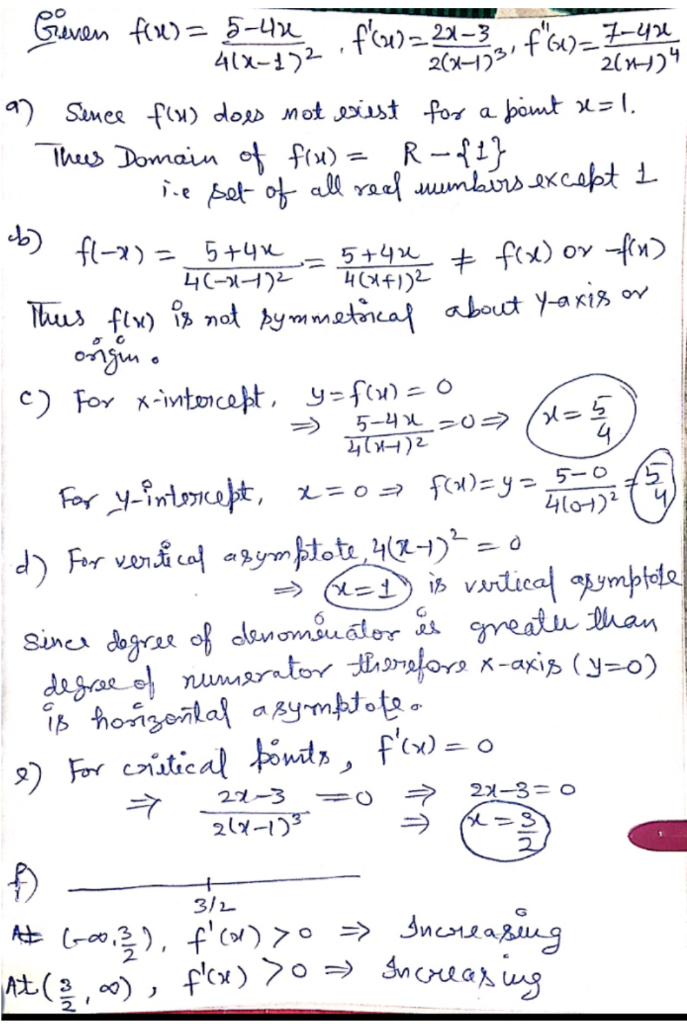 Given f(x) = 5-4x / 4(x-1)², f'(x) = 2x-3 / 2(x-1)³, f''(x) = 7-4x / 2(x-1)⁴
a) Since f(x) does not exist for a point x=1.
Thus Domain of f(x) = R-{1}
i.e set of all real numbers except 1
b) f(-x) = 5+4x / 4(-x-1)² = 5+4x / 4(x+1)² ≠ f(x) or -f(x)
Thus f(x) is not symmetrical about y-axis or
origin.
c) For x-intercept, y=f(x) = 0
⇒ 5-4x / 4(x-1)² = 0 ⇒ x = 5/4
For y-intercept, x=0 ⇒ f(x)=y= 5-0 / 4(0-1)² = 5/4
d) For vertical asymptote, 4(x-1)² = 0
⇒ x=1 is vertical asymptote
Since degree of denominator is greater than
degree of numerator therefore x-axis (y=0)
is horizontal asymptote.
e) For critical points, f'(x) = 0
⇒ 2x-3 / 2(x-1)³ = 0 ⇒ 2x-3=0
⇒ x = 3/2
f)
3/2
At (-∞, 3/2), f'(x) > 0 ⇒ Increasing
At (3/2, ∞), f'(x) > 0 ⇒ Increasing